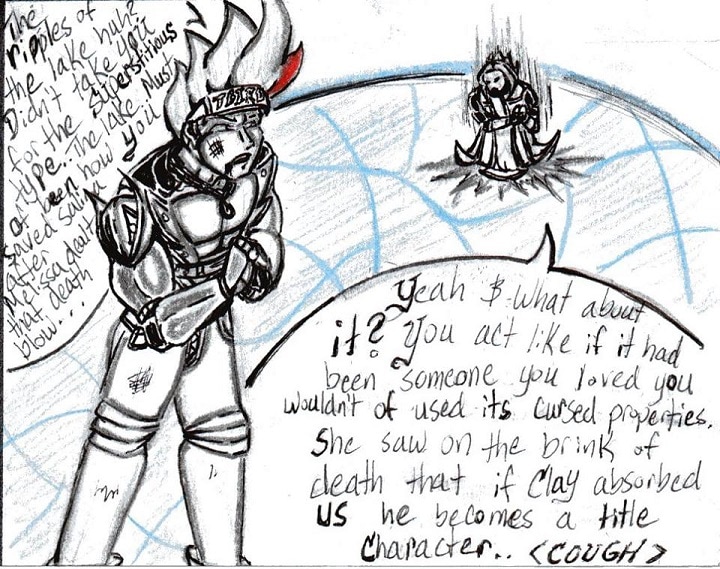 The
ripples of
the lake huh?
Didn't take you
for the superstitious
type.. The lake Must
of been how you
saved Salina
after
Melissa dealt
that death
blow...
Yeah & what about
it? You act like if it had
been someone you loved you
wouldn't of used its cursed properties.
She saw on the brink of
death that if Clay absorbed
us he becomes a title
character.. <COUGH>